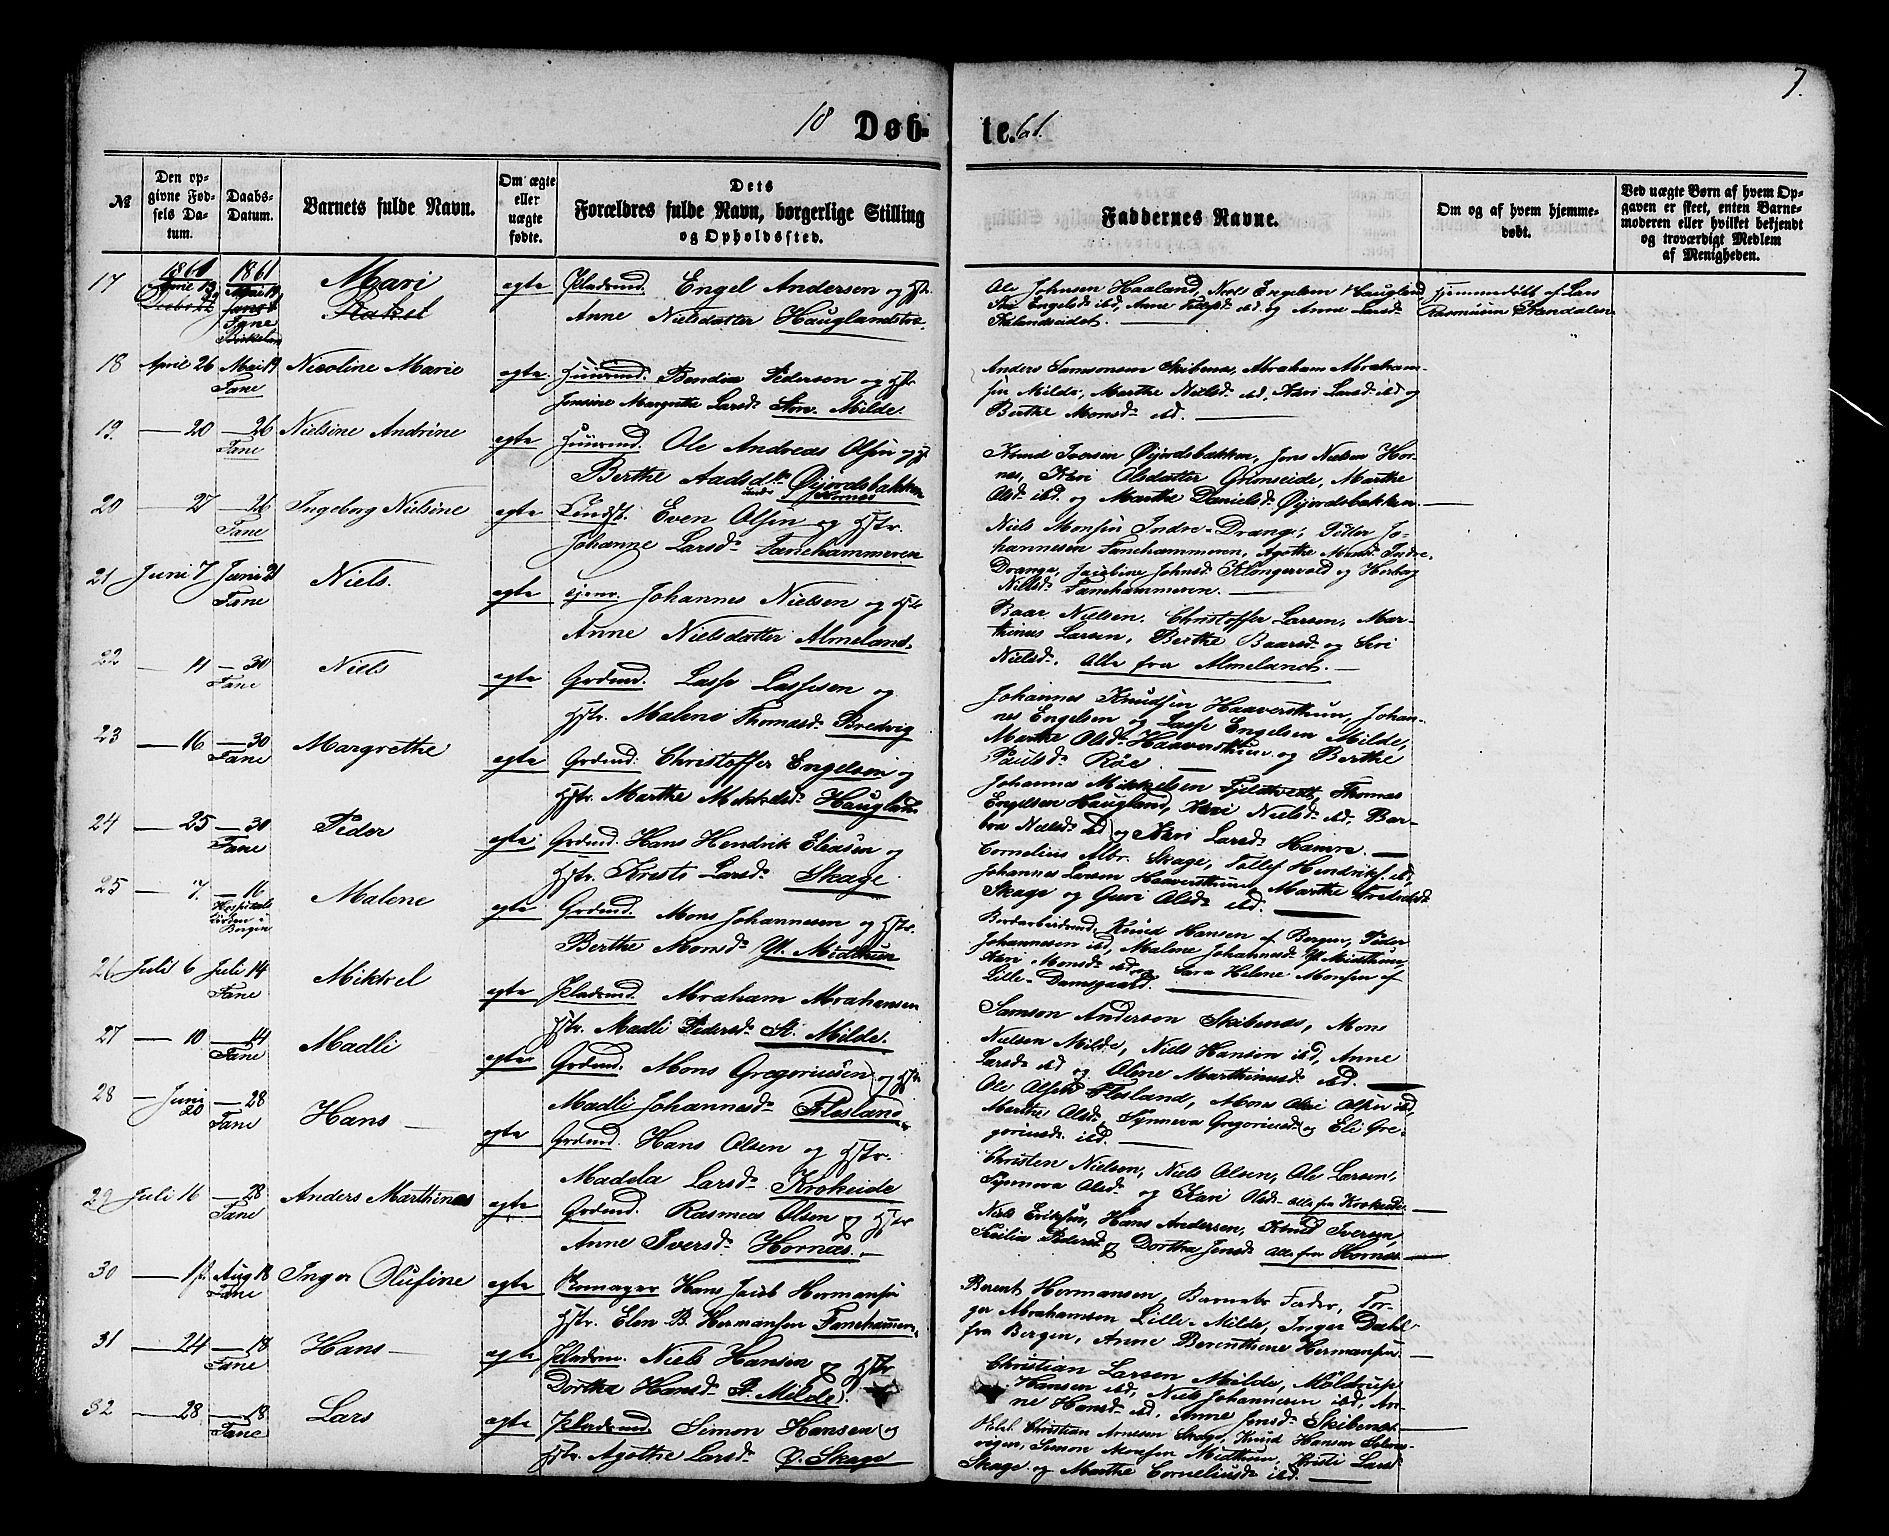 7.
18 Døb- te. 61.
№
Den opgivne Fødsels Datum.
Daabs-Datum.
Barnets fulde Navn.
Om ægte eller uægte fødte.
Dets Forældres fulde Navn, borgerlige Stilling og Opholdssted.
Faddernes Navne.
Om og af hvem hjemmedøbt.
Ved uægte Børn af hvem Opgaven er skeet, enten Barnemoderen eller hvilket bekjendt og troværdigt Medlem af Menigheden.
17 1861 April 1861 Mai 19 Fane Mari egte Pladsmd. Engel Andersen og Hstr.
Anne Nielsdatter Hauglandstræ
Ole Johnsen Haaland, Niels Engelsen Haugland
ibd, Anne ibd. og Anna Larsd.
Kalandseidet.
Hjemmedøbt af Lars
Rasmusen Stendalen
18 April 26 Mai 19 Fane Nicoline Marie egte Huusmd. Bendix Pedersen og Hstr
Jensine Margrethe Larsd. Store Milde.
Anders Samsonsen Skibenes, Abraham Abraham-
sen Milde, Marthe Nielsd. ibd, Kari Larsd. ibd og
Berthe Monsd. ibd.
19. — 20 — 26 Fane Nielsine Andrine egte Huusmd. Ole Andreas Olsen og H
Berthe Aadsd. Øijordsbakken
Hornes
Knud Iversen Øijordsbakken, Jens Nielsen Hor-
nes, Kari Olsdatter Grimseide, Marthe
Olsd. ibd. og Marthe Danielsd. Øijordsbakken.
20 — 27 — 26 Fane Ingeborg Nielsine egte Lindst. Even Olsen og Hstr.
Johanne Larsd. Fanehammeren
Niels Monsen Indre-Drange, Peder Jo-
hannesen Fanehammeren, Agathe Monsd. Indre
Drange, Jacobine Johnsd. Klongervold og Herborg
Nielsd. Fanehammeren.
21 Juni 7 Juni 21 Fane Niels. egte Johannes Nielsen og Hstr
Anne Nielsdatter Almeland.
Baar Nielsen, Christoffer Larsen, Mar-
thinus Larsen, Berthe Baarsd. og Siri
Nielsd. Alle fra Almeland.
22 — 11 — 30 Fane Niels egte Grdmd. Lasse Lassesen og
Hstr. Malene Thomasd. Bredvig
Johannes Knudsen Haaversthun, Johan-
nes Engelsen og Lasse Engelsen Milde,
Marthe Olsd. Haaversthun og Berthe
Paulsd. Røe
23 — 16 — 30 Fane Margrethe egte Grdmd. Christoffer Engelsen og
Hstr. Marthe Mikkelsd. Haugland
Johannes Mikkelsen Fjeldtvedt, Thomas
Engelsen Haugland, Kari Nielsd. ibd, Bar-
bra Nielsd. ibd og Kari Larsd. Hamre.
24 — 25 — 30 Fane Peder egte Grdmd. Hans Hendrik Eliasen og
Hstr. Kristi Larsd. Skage
Cornelius Albr. Skage, Tollef Hendriks. ibd,
Johannes Larsen Haaversthun, Marthe Fredriksd.
Skage og Guri Olsd. ibd.
25 — 7. — 16 Hospitals kirken i Bergen Malene egte Grdmd. Mons Johannesen og Hstr.
Berthe Monsd. Y. Midthun
Bordarbeidsmd, Knud Hansen af Bergen, Peder
Johannesen ibd, Malene Johannesd. Y. Midthun,
Kari Monsd. ibd og Sara Helene Monsen af
Lille-Damsgaard.
26 Juli 6 Juli 14 Fane Mikkel egte Pladsmd. Abraham Abrahamsen
Hstr. Madli Pedersd. St. Milde.
Samson Anderson Skibenes, Mons
Nielsen Milde, Niels Hansen ibd, Anne
Larsd. ibd og Oline Marthinusd. ibd.
27 — 10 — 14 Fane Madli egte Grdmd. Mons Gregoriusen og Hstr
Madli Johannesd. Flesland
Ole Olsen Flesland, Mons Olsen ibd,
Marthe Olsd, Synneva Gregoriusd. og Eli Gre-
goriusd. ibd.
28 — Juni 20 — 28 Fane Hans egte Grdmd. Hans Olsen og Hstr.
Madela Larsd. Krokeide
Christen Nielsen, Niels Olsen, Ole Larsen,
Synneva Olsd. og Kari Olsd. alle fra Krokeide.
29 Juli 16 — 28 Fane Anders Marthinus egte Grdmd. Rasmus Olsen og Hstr
Anne Iversd. Hornæs.
Niels Eriksen, Hans Andersen, Knud Iversen,
Secilia Pedersd. og Dorthea Jensd. alle fra Hornæs.
30 Aug 18 Fane Inger Olufine egte Skomager Hans Jacob Hermansen
Hstr. Elen B. Hermansen Fanehammer.
Berent Hermansen, Barnets Fader, Tor-
ger Abrahamsen Lille-Milde, Inger Dahl
fra Bergen, Anne Berenthine Hermansen.
31 — 24 — 18 Fane Hans egte Pladsm. Niels Hansen og Hstr
Dorthe Hansd. P. Milde.
Christian Larsen Milde, Møldrup
Hansen ibd, Niels Johannesen ibd, An-
ne Hansd. ibd. Anne Jensd. Skibenes.
32 — 28 — 18 Fane Lars egte Pladsmd. Simon Hansen og
Hstr. Agathe Larsd. Ø. Skage
Christian Arnesen Skage, Knud Hansen
Simon Monsen Midthun, Kristi Larsd
Skage og Marthe Corneliusd. ibd.